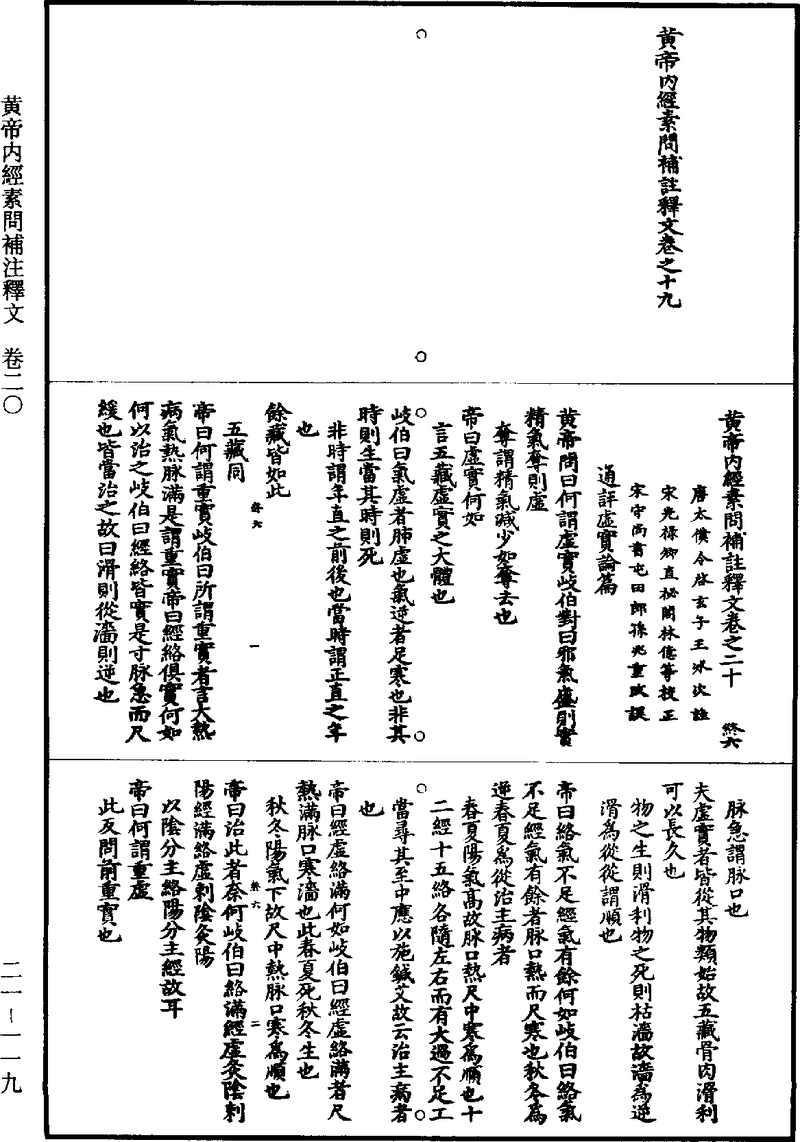 黃帝内經素問補註釋文卷之十九
黃帝内經素問補註釋文卷之二十 終六
唐太僕令啓玄子王冰次註
宋光祿卿直祕閣林億等校正
宋守尚書屯田郎孫兆重改誤
通評虛實論篇
黃帝問曰何謂虛實岐伯對曰邪氣盛則實
精氣奪則虛
奪謂精氣減少如奪去也
帝曰虛實何如
言五藏虛實之大體也
岐伯曰氣虛者肺虛也氣逆者足寒也非其
時則生當其時則死
非時謂年直之前後也當時謂正直之年
也
餘藏皆如此
五藏同
終六 一
帝曰何謂重實岐伯曰所謂重實者言大熱
病氣熱脉滿是謂重實帝曰經絡俱實何如
何以治之岐伯曰經絡皆實是寸脉急而尺
緩也皆當治之故曰滑則從濇則逆也
脉急謂脉口也
夫虛實者皆從其物類始故五藏骨肉滑利
可以長久也
物之生則滑利物之死則枯濇故濇為逆
滑為從從謂順也
帝曰絡氣不足經氣有餘何如岐伯曰絡氣
不足經氣有餘者脉口熱而尺寒也秋冬為
逆春夏為從治主病者
春夏陽氣高故脉口熱尺中寒為順也十
二經十五絡各隨左右而有大過不足工
當尋其至中應以施鍼艾故云治主病者
也
帝曰經虛絡滿何如岐伯曰經虛絡滿者尺
熱滿脉口寒濇也此春夏死秋冬生也
秋冬陽氣下故尺中熱脉口寒為順也
終六 二
帝曰治此者奈何岐伯曰絡滿經虛灸陰刺
陽經滿絡虛刺陰灸陽
以陰分主絡陽分主經故耳
帝曰何謂重虛
此反問前重實也
黃帝内經素問補注釋文 卷二〇
二一—一一九